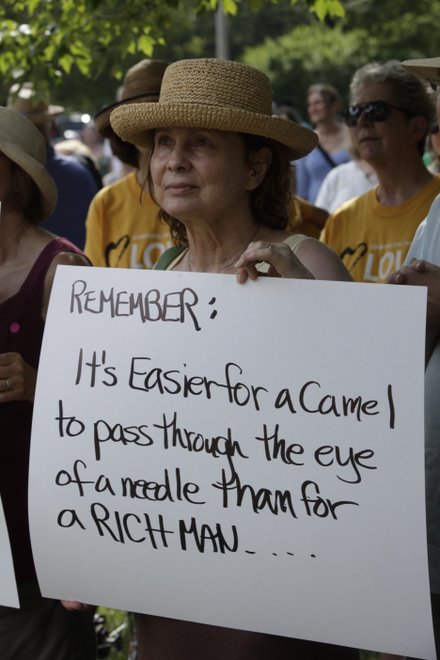 REMEMBER:
It's Easier for a Camel
to pass through the eye
of a needle than for
a RICH MAN.....
LOVE
LOV